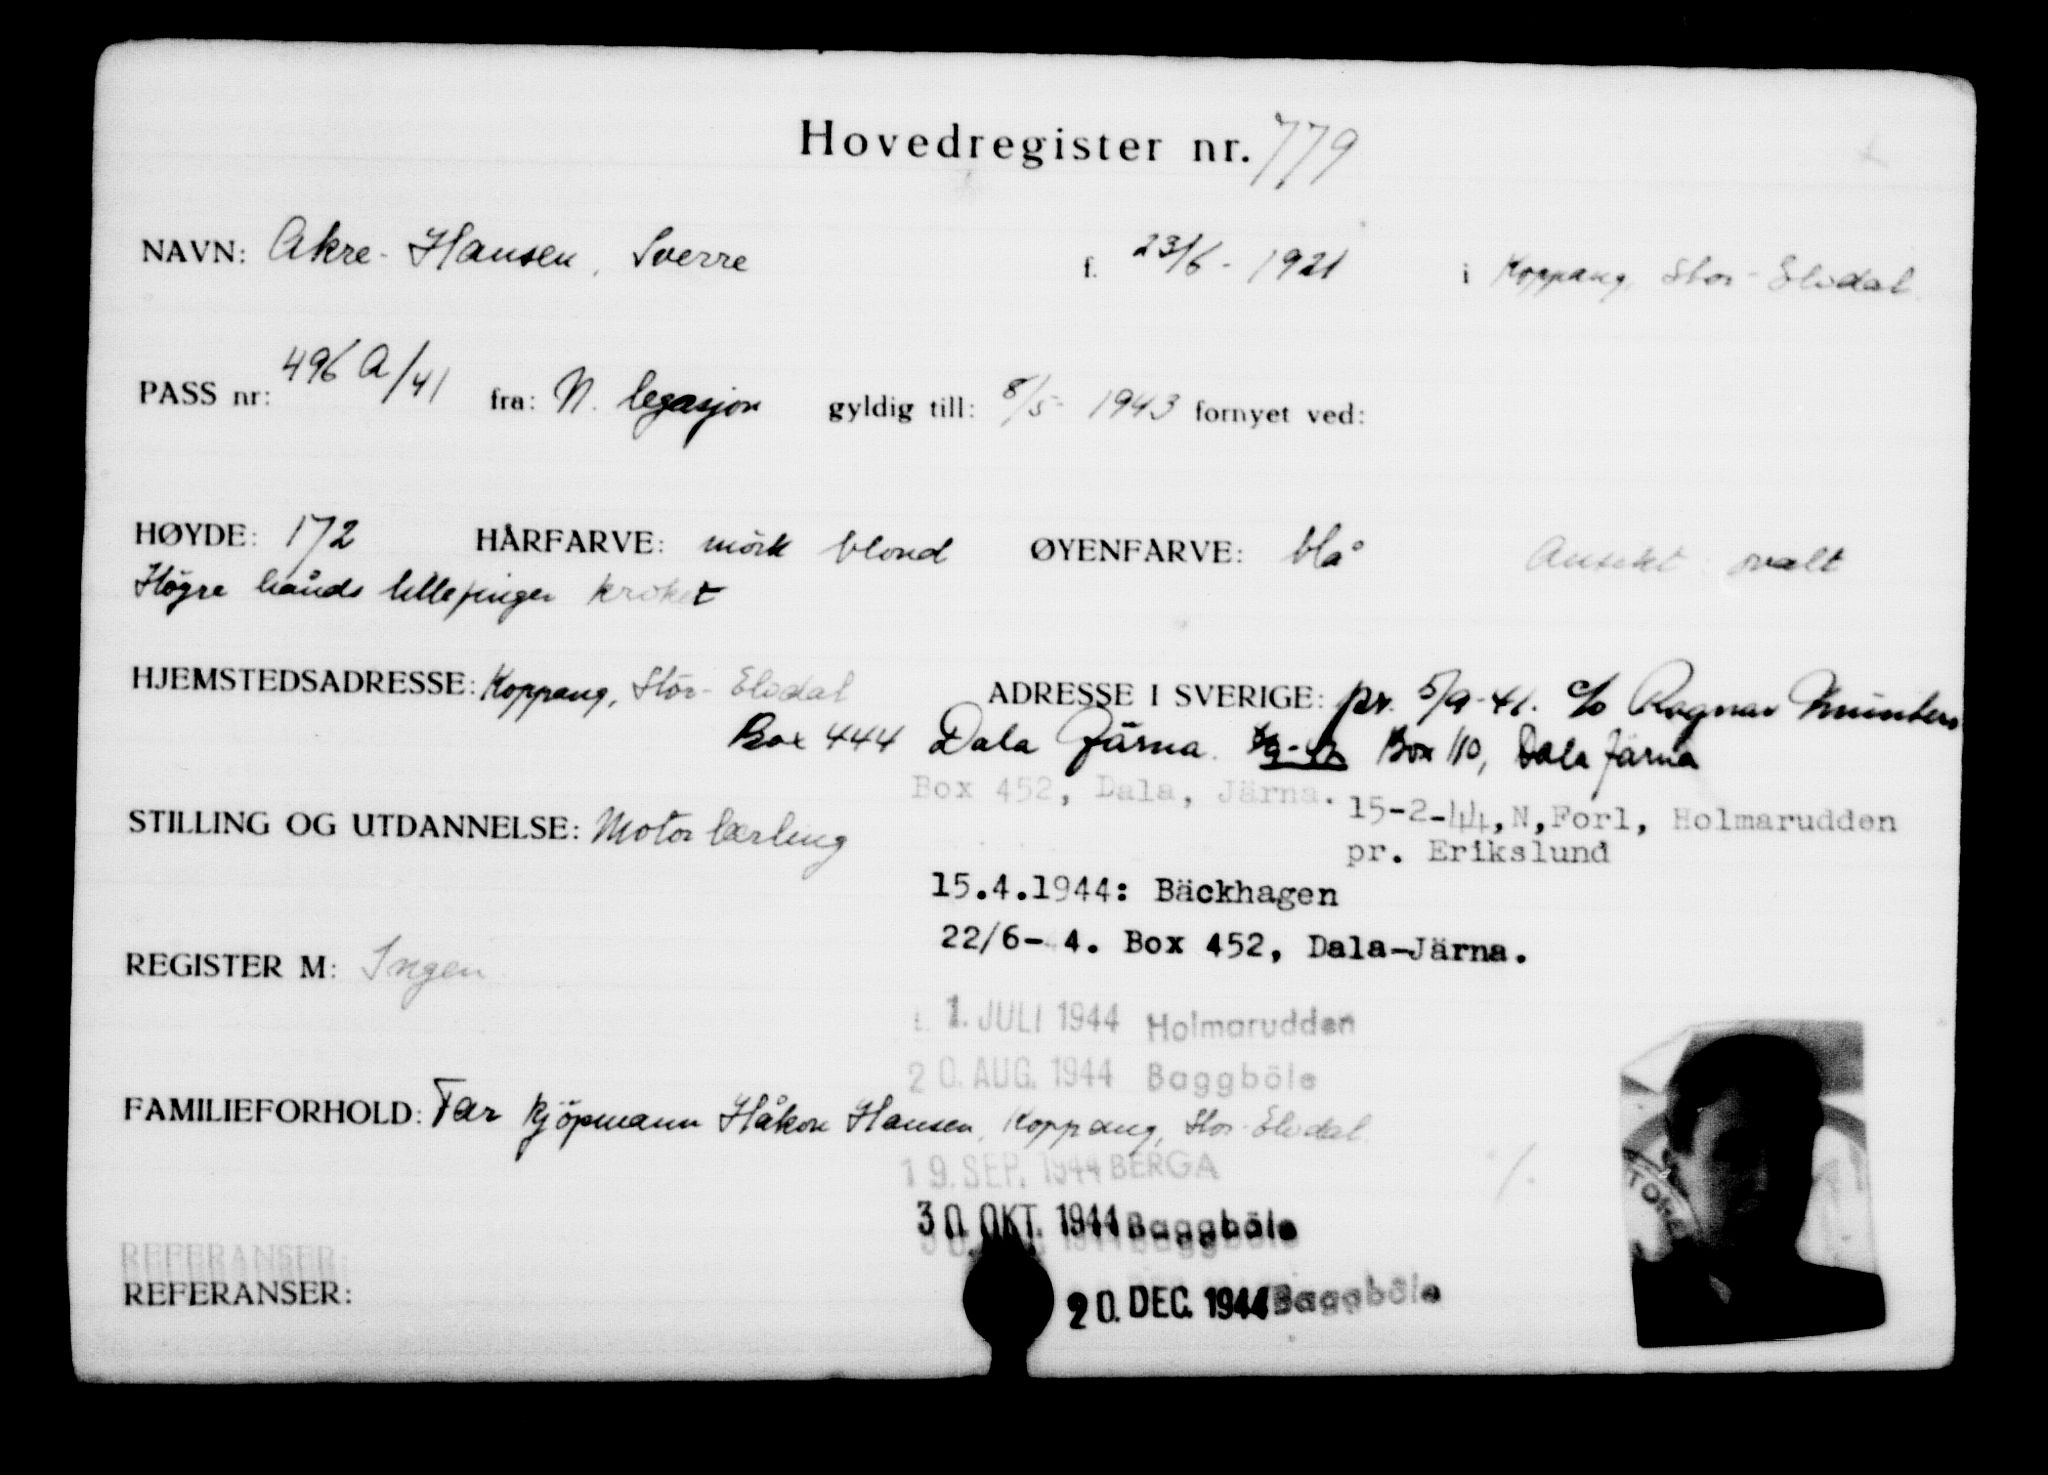 Hovedregister nr. 779
NAVN: Akre-Hansen, Sverre f. 23/6-1921 i Koppang, Stor-Elvdal.
PASS nr: 496 A/41 fra: N. legasjon gyldig till: 8/5-1943 fornyet ved:
HØYDE: 172 HÅRFARVE: mörk blond ØYENFARVE: blå Ansikt: ovalt
Högre hånds lillefinger kroket
HJEMSTEDSADRESSE: Koppang, Stor-Elvdal ADRESSE I SVERIGE: pr. 5/9-41. c/o Ragnar
Box 444 Dala Järna. Box 110, Dala Järna
Box 452, Dala, Järna.
STILLING OG UTDANNELSE: Motorlærling 15-2-44, N,Forl, Holmarudden
pr. Erikslund
15.4.1944: Bäckhagen
22/6- 4. Box 452, Dala-Järna.
REGISTER M: Ingen
1. JULI 1944 Holmarudden
20. AUG. 1944 Baggböle
FAMILIEFORHOLD: Far kjöpmann Håkon Hansen, Koppang, Stor-Elvdal.
19. SEP. 1944 BERGA
30. OKT. 1944 Baggböle
REFERANSER:
REFERANSER: 20. DEC. 1944 Baggböle